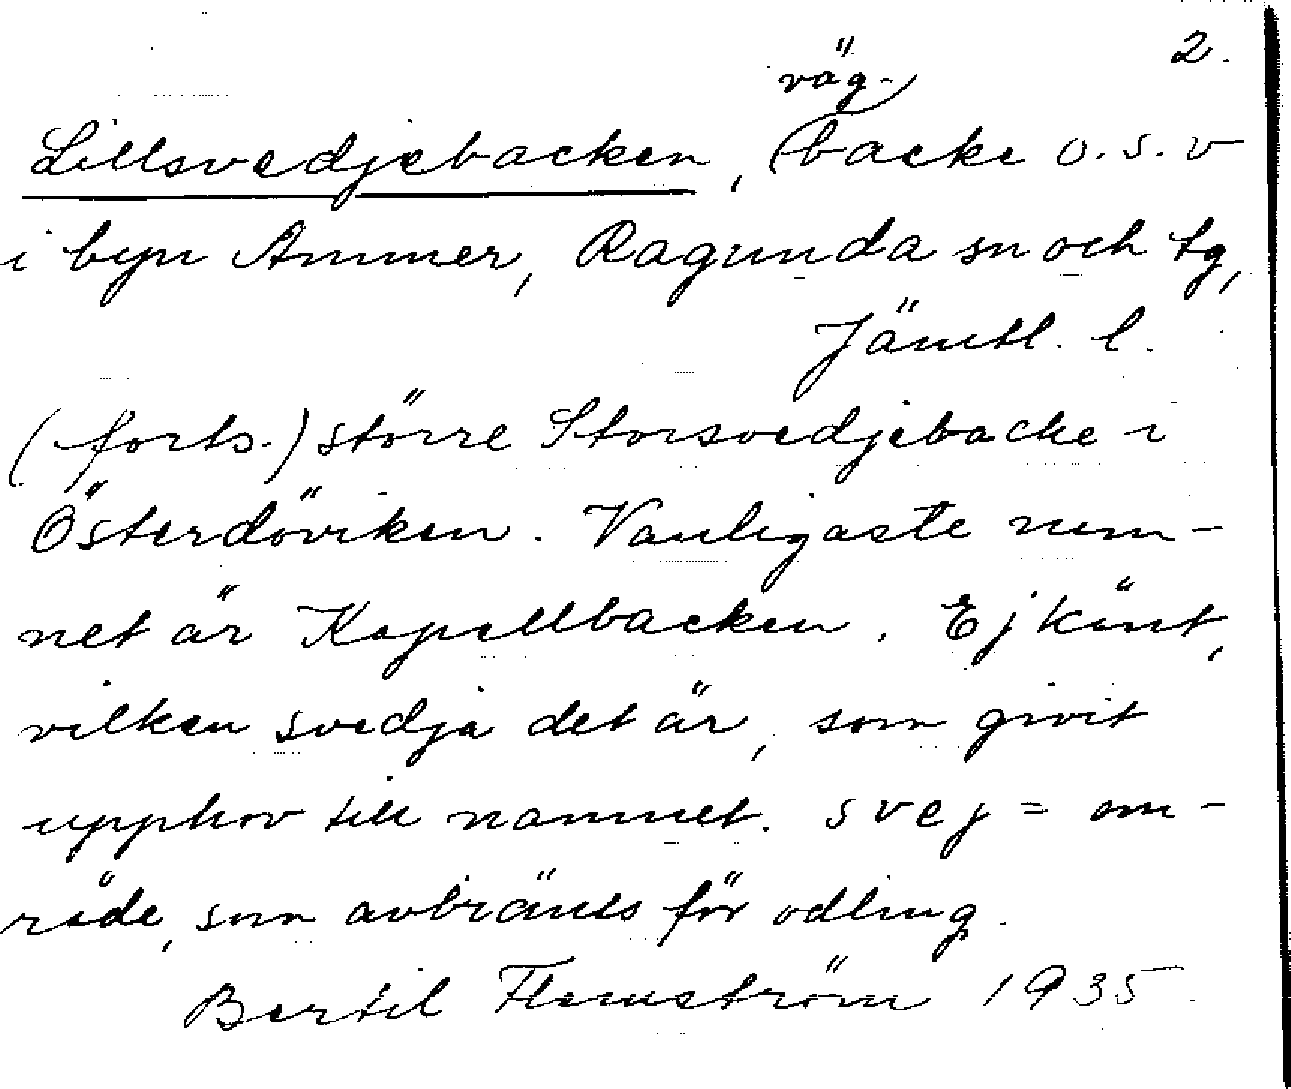 2.
väg-
Lillsvedjebacken, backe o.s.v
i byn Ammer, Ragunda sn och tg,
Jämtl. l.
(forts.) större Storsvedjebacke i
Österdöviken. Vanligaste nam-
net är Kapellbacken. Ej känt,
vilken svedja det är, som givit
upphov till namnet. svej = om-
råde, som avbränts för odling.
Bertil Flemström 1935